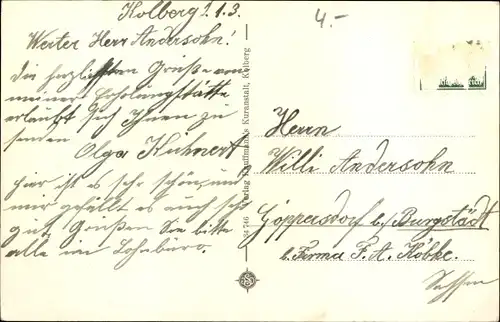 Kolberg 1.1.3.
4.-
Werter Herr Andersohn!
Die herzlichsten Grüße von
meiner Erholungsstätte
erlaubt sich Ihnen zu
senden
Olga Kuhnert
Hier ist es sehr schön, und
mir gefällt es auch sehr
gut. Grüßen Sie bitte
alle im Lohnbüro.
34 746 Verlag Kauffmann's Kuranstalt, Kolberg
Herrn
Willi Andersohn
Göppersdorf b/ Burgstädt
b. Firma F. A. Köbke.
Sachsen